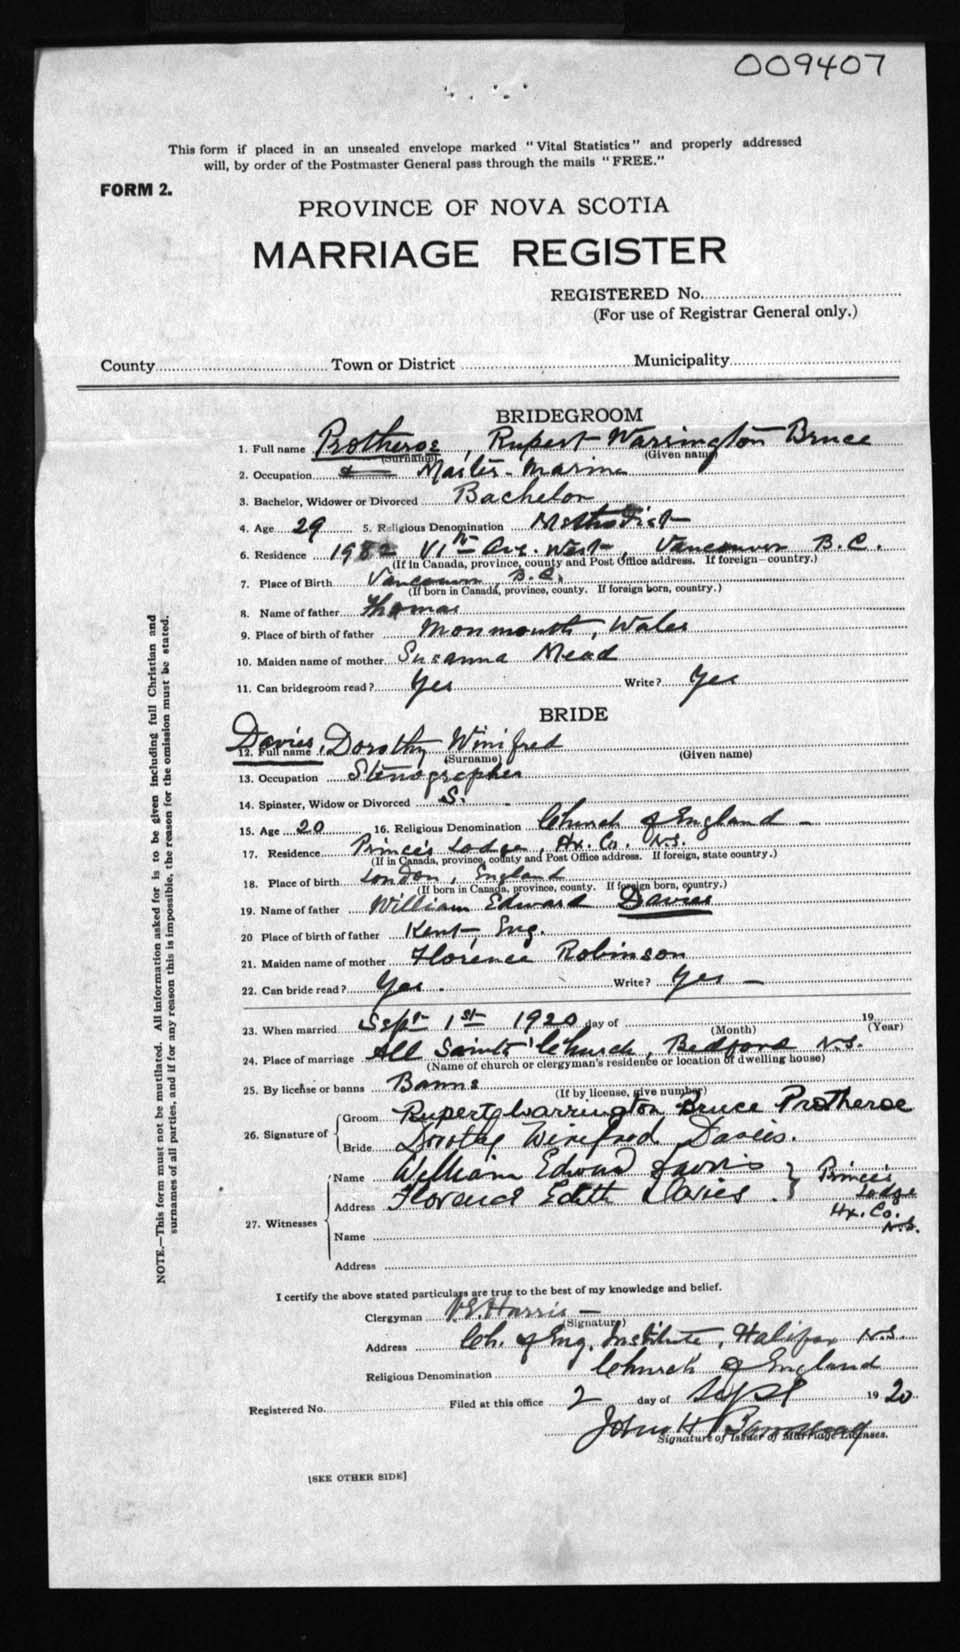 009407
This form if placed in an unsealed envelope marked "Vital Statistics" and properly addressed
will, by order of the Postmaster General pass through the mails "FREE."
FORM 2.
PROVINCE OF NOVA SCOTIA
MARRIAGE REGISTER
REGISTERED No.
(For use of Registrar General only.)
County Town or District Municipality
BRIDEGROOM
1. Full name Protheroe, Rupert Warrington Bruce
(Surname) (Given name)
2. Occupation Master-Marine
3. Bachelor, Widower or Divorced Bachelor
4. Age 29 5. Religious Denomination Methodist
6. Residence VIth Ave. West, Vancouver B.C.
(If in Canada, province, county and Post Office address. If foreign—country.)
7. Place of Birth Vancouver, B.C.
(If born in Canada, province, county. If foreign born, country.)
8. Name of father Thomas
9. Place of birth of father Monmouth, Wales
10. Maiden name of mother Susanna Mead
11. Can bridegroom read? Yes Write? Yes
BRIDE
12. Full name Davies, Dorothy Winifred
(Surname) (Given name)
13. Occupation Stenographer
14. Spinster, Widow or Divorced S.
15. Age 20 16. Religious Denomination Church of England —
17. Residence Prince's Lodge, Hx. Co. N.S.
(If in Canada, province, county and Post Office address. If foreign, state country.)
18. Place of birth London, England
(If born in Canada, province, county. If foreign born, country.)
19. Name of father William Edward Davies
20 Place of birth of father Kent, Eng.
21. Maiden name of mother Florence Robinson
22. Can bride read? Yes. Write? Yes —
23. When married Sept 1st 1920 day of 19
(Month) (Year)
24. Place of marriage All Saints' Church, Bedford N.S.
(Name of church or clergyman's residence or location of dwelling house)
25. By license or banns Banns
(If by license, give number)
26. Signature of Groom Rupert Warrington Bruce Protheroe
Bride Dorothy Winifred Davies.
27. Witnesses Name William Edward Davies } Prince's Lodge
Address Florence Edith Davies Hx. Co. N.S.
Name
Address
I certify the above stated particulars are true to the best of my knowledge and belief.
Clergyman V.E. Harris —
(Signature)
Address Ch. of Eng. Institute, Halifax N.S.
Religious Denomination Church of England
Registered No. Filed at this office 2 day of Sept 1920
John H
Signature of Issuer of Marriage Licenses.
[SEE OTHER SIDE]
NOTE.—This form must not be mutilated. All information asked for is to be given including full Christian and
surnames of all parties, and if for any reason this is impossible, the reason for the omission must be stated.